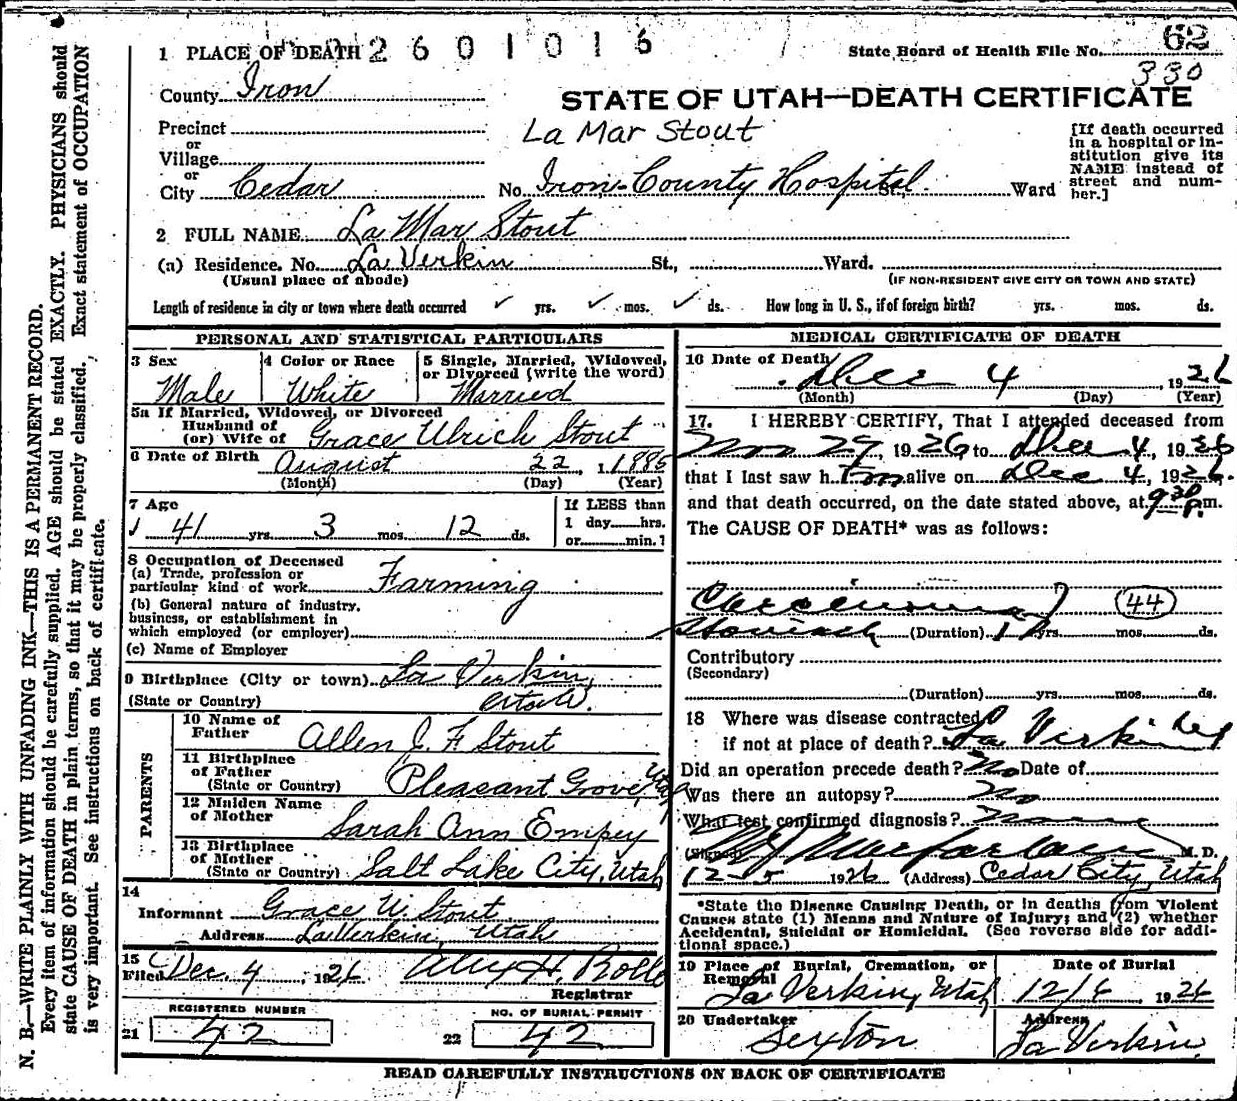 N. B.—WRITE PLAINLY WITH UNFADING INK—THIS IS A PERMANENT RECORD.
Every item of information should be carefully supplied. AGE should be stated EXACTLY. PHYSICIANS should
state CAUSE OF DEATH in plain terms, so that it may be properly classified. Exact statement of OCCUPATION
is very important. See instructions on back of certificate.
1 PLACE OF DEATH 2601016
State Board of Health File No. 62
330
County Iron
STATE OF UTAH—DEATH CERTIFICATE
Precinct
La Mar Stout
or
Village
or
City Cedar No. Iron County Hospital St., Ward
[If death occurred
in a hospital or in-
stitution give its
NAME instead of
street and num-
ber.]
2 FULL NAME La Mar Stout
(a) Residence. No. La Verkin St., Ward.
(Usual place of abode) (IF NON-RESIDENT GIVE CITY OR TOWN AND STATE)
Length of residence in city or town where death occurred ✓ yrs. ✓ mos. ✓ ds. How long in U. S., if of foreign birth? yrs. mos. ds.
PERSONAL AND STATISTICAL PARTICULARS
3 Sex
Male
4 Color or Race
White
5 Single, Married, Widowed,
or Divorced (write the word)
Married
5a If Married, Widowed, or Divorced
Husband of
(or) Wife of Grace Ulrich Stout
6 Date of Birth August 22, 1885
(Month) (Day) (Year)
7 Age
41 yrs. 3 mos. 12 ds.
If LESS than
1 day hrs.
or min.?
8 Occupation of Deceased
(a) Trade, profession or
particular kind of work Farming
(b) General nature of industry,
business, or establishment in
which employed (or employer)
(c) Name of Employer
9 Birthplace (City or town) La Verkin,
(State or Country) Utah.
PARENTS
10 Name of
Father Allen J. F Stout
11 Birthplace
of Father
(State or Country) Pleasant Grove, Utah
12 Maiden Name
of Mother Sarah Ann Empey
13 Birthplace
of Mother
(State or Country) Salt Lake City, Utah
14
Informant Grace U. Stout
Address La Verkin, Utah
15
Filed Dec. 4, 1926
Registrar
REGISTERED NUMBER
21 42
NO. OF BURIAL PERMIT
22 42
MEDICAL CERTIFICATE OF DEATH
16 Date of Death
Dec 4, 1926
(Month) (Day) (Year)
17. I HEREBY CERTIFY, That I attended deceased from
Nov 29, 1926 to Dec 4, 1926
that I last saw him alive on Dec 4, 1926.
and that death occurred, on the date stated above, at 9 30 P. m.
The CAUSE OF DEATH* was as follows:
Carcinoma 44
Stomach (Duration) 1 yrs. mos. ds.
Contributory
(Secondary)
(Duration) yrs. mos. ds.
18 Where was disease contracted
if not at place of death? La Verkin Ut
Did an operation precede death? No Date of
Was there an autopsy? No
What test confirmed diagnosis?
(Signed) Macfarlane M. D.
12-5 1926 (Address) Cedar City, Utah
*State the Disease Causing Death, or in deaths from Violent
Causes state (1) Means and Nature of Injury; and (2) whether
Accidental, Suicidal or Homicidal. (See reverse side for addi-
tional space.)
19 Place of Burial, Cremation, or
Removal
La Verkin, Utah
Date of Burial
12/6, 1926
20 Undertaker
Sexton
Address
La Verkin,
READ CAREFULLY INSTRUCTIONS ON BACK OF CERTIFICATE